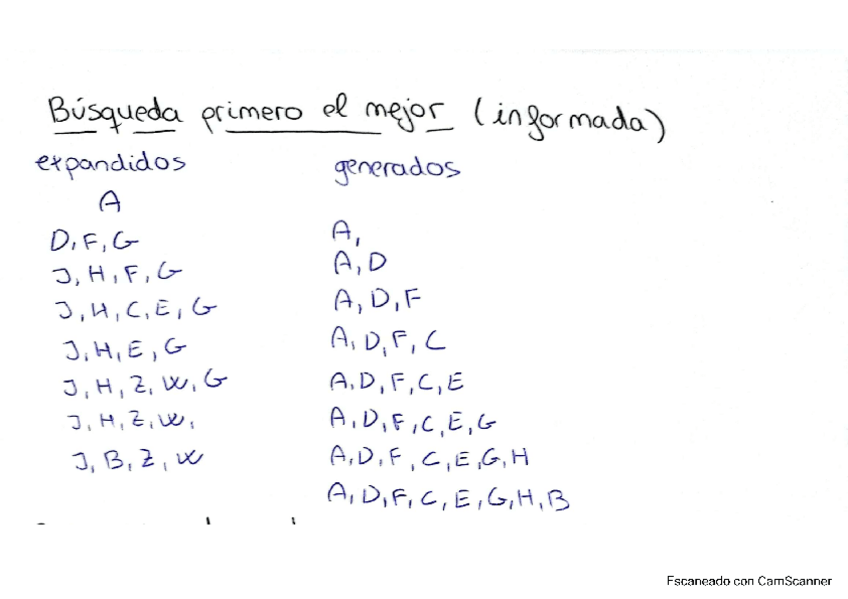 Búsqueda primero el mejor (informada)
expandidos generados
A
D, F, G A,
J, H, F, G A, D
J, H, C, E, G A, D, F
J, H, E, G A, D, F, C
J, H, Z, W, G A, D, F, C, E
J, H, Z, W, A, D, F, C, E, G
J, B, Z, W A, D, F, C, E, G, H
A, D, F, C, E, G, H, B
Escaneado con CamScanner